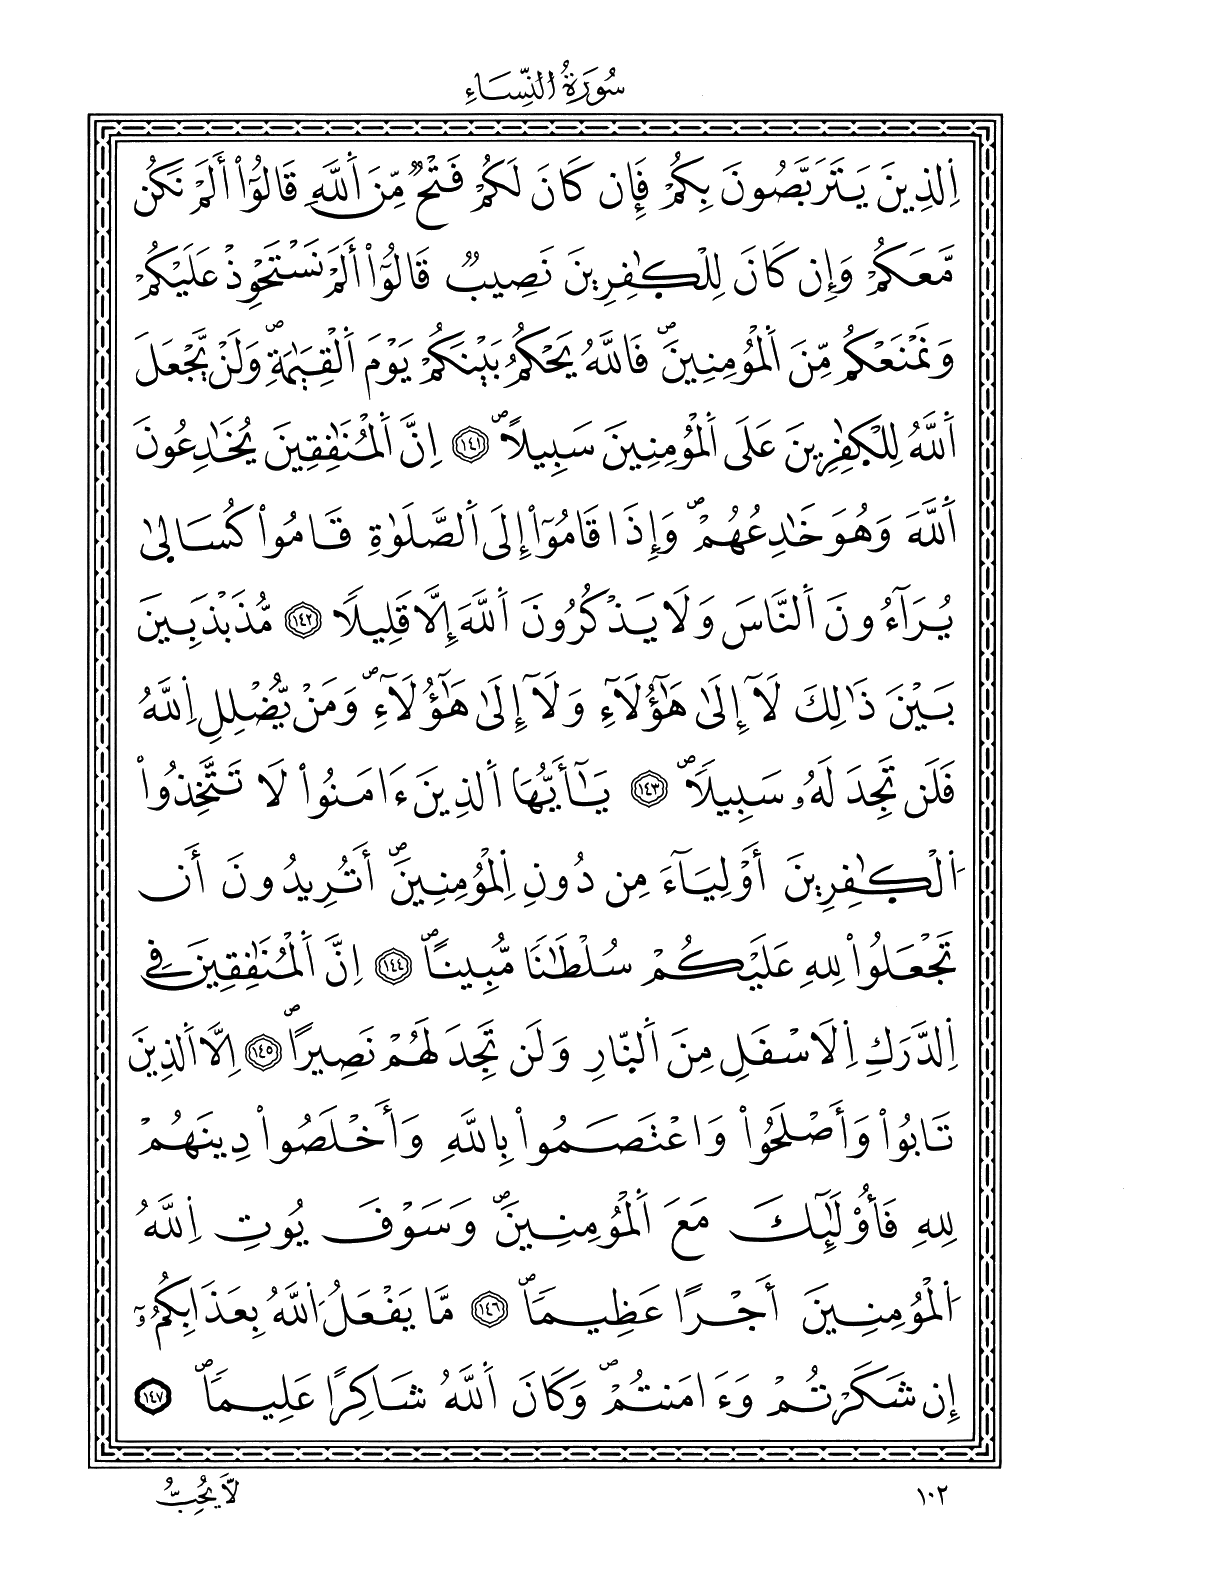 سُورَةُ النِّسَاءِ
اِ۬لذِينَ يَتَرَبَّصُونَ بِكُمْ فَإِن كَانَ لَكُمْ فَتْحٞ مِّنَ اَ۬للَّهِ قَالُوٓاْ أَلَمْ نَكُن
مَّعَكُمْ وَإِن كَانَ لِلْكٰ۪فِرِينَ نَصِيبٞ قَالُوٓاْ أَلَمْ نَسْتَحْوِذْ عَلَيْكُمْ
وَنَمْنَعْكُم مِّنَ اَ۬لْمُومِنِينَۖ فَاللَّهُ يَحْكُمُ بَيْنَكُمْ يَوْمَ اَ۬لْقِيَٰمَةِۖ وَلَنْ يَّجْعَلَ
اَ۬للَّهُ لِلْكٰ۪فِرِينَ عَلَى اَ۬لْمُومِنِينَ سَبِيلاًۖ ١٤١ اِنَّ اَ۬لْمُنَٰفِقِينَ يُخَٰدِعُونَ
اَ۬للَّهَ وَهُوَ خَٰدِعُهُمْۖ وَإِذَا قَامُوٓاْ إِلَى اَ۬لصَّلَوٰةِ قَامُواْ كُسَال۪ىٰ
يُرَآءُونَ اَ۬لنَّاسَ وَلَا يَذْكُرُونَ اَ۬للَّهَ إِلَّا قَلِيلًا ١٤٢ مُّذَبْذَبِينَ
بَيْنَ ذَٰلِكَ لَآ إِلَىٰ هَٰٓؤُلَآءِ وَلَآ إِلَىٰ هَٰٓؤُلَآءِۖ وَمَنْ يُّضْلِلِ اِ۬للَّهُ
فَلَن تَجِدَ لَهُۥ سَبِيلاًۖ ١٤٣ يَٰٓأَيُّهَا اَ۬لذِينَ ءَامَنُواْ لَا تَتَّخِذُواْ
اُ۬لْكٰ۪فِرِينَ أَوْلِيَآءَ مِن دُونِ اِ۬لْمُومِنِينَۖ أَتُرِيدُونَ أَن
تَجْعَلُواْ لِلهِ عَلَيْكُمْ سُلْطَٰنًا مُّبِيناًۖ ١٤٤ إِنَّ اَ۬لْمُنَٰفِقِينَ فِي
اِ۬لدَّرَكِ اِ۬لَاسْفَلِ مِنَ اَ۬لنّ۪ارِ وَلَن تَجِدَ لَهُمْ نَصِيراًۖ ١٤٥ اِلَّا اَ۬لذِينَ
تَابُواْ وَأَصْلَحُواْ وَاعْتَصَمُواْ بِاللَّهِ وَأَخْلَصُواْ دِينَهُمْ
لِلهِ فَأُوْلَٰٓئِكَ مَعَ اَ۬لْمُومِنِينَۖ وَسَوْفَ يُوتِ اِ۬للَّهُ
اُ۬لْمُومِنِينَ أَجْرًا عَظِيماًۖ ١٤٦ مَّا يَفْعَلُ اُ۬للَّهُ بِعَذَابِكُمُۥٓ
إِن شَكَرْتُمْ وَءَامَنتُمْۖ وَكَانَ اَ۬للَّهُ شَاكِرًا عَلِيماًۖ ١٤٧
١٠٢
لَّا يُحِبُّ